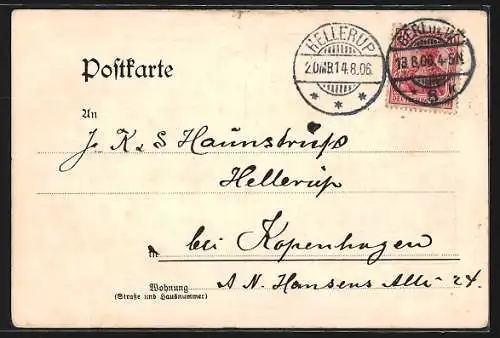 HELLERUP
2.OMB.14.8.06
BERLIN
13.8.06.4-5N
Postkarte
An
J. K. S Haunstrup
Hellerup
bei Kopenhagen
in
A N. Hansens Alle 24.
Wohnung
(Straße und Hausnummer)